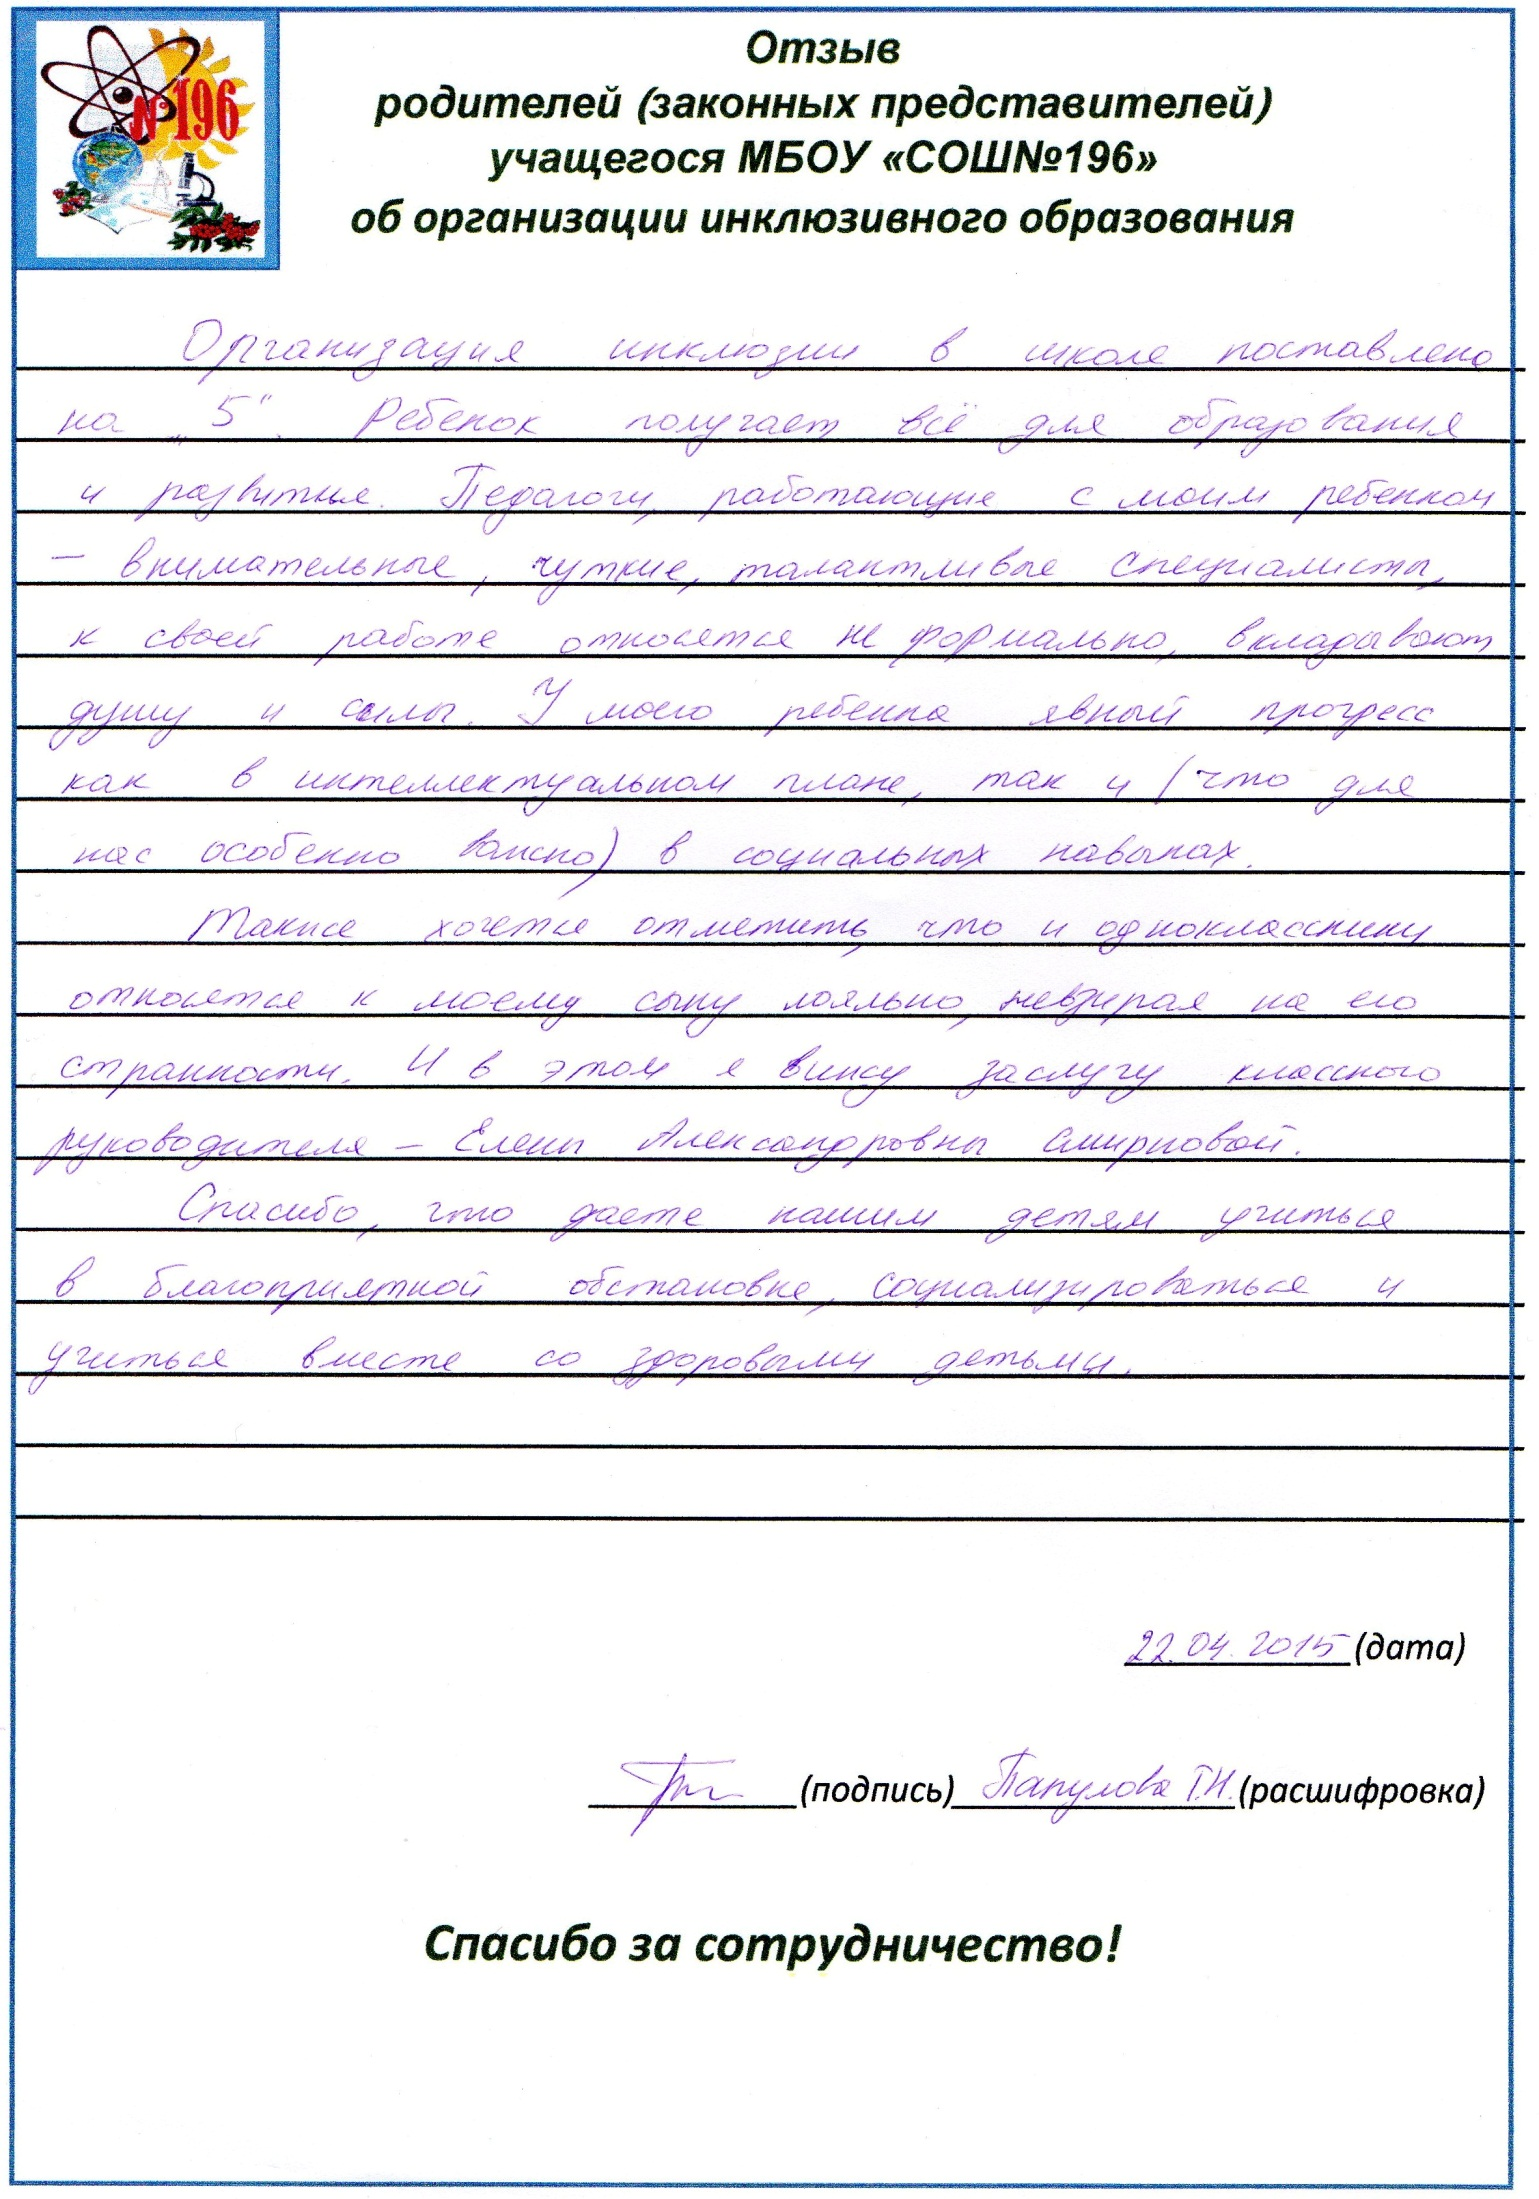 №196
Отзыв
родителей (законных представителей)
учащегося МБОУ «СОШ№196»
об организации инклюзивного образования
Организация инклюзии в школе поставлено
на „5“. Ребенок получает всё для образования
и развития. Педагоги, работающие с моим ребенком
– внимательные, чуткие, талантливые специалисты,
к своей работе относятся не формально, вкладывают
душу и силы. У моего ребенка явный прогресс
как в интеллектуальном плане, так и (что для
нас особенно важно) в социальных навыках.
Также хочется отметить, что и одноклассники
относятся к моему сыну лояльно, невзирая на его
странности. И в этом я вижу заслугу классного
руководителя – Елены Александровны Смирновой.
Спасибо, что даете нашим детям учиться
в благоприятной обстановке, социализироваться и
учиться вместе со здоровыми детьми.
22.04.2015 (дата)
(подпись) Папулова Т.Н. (расшифровка)
Спасибо за сотрудничество!